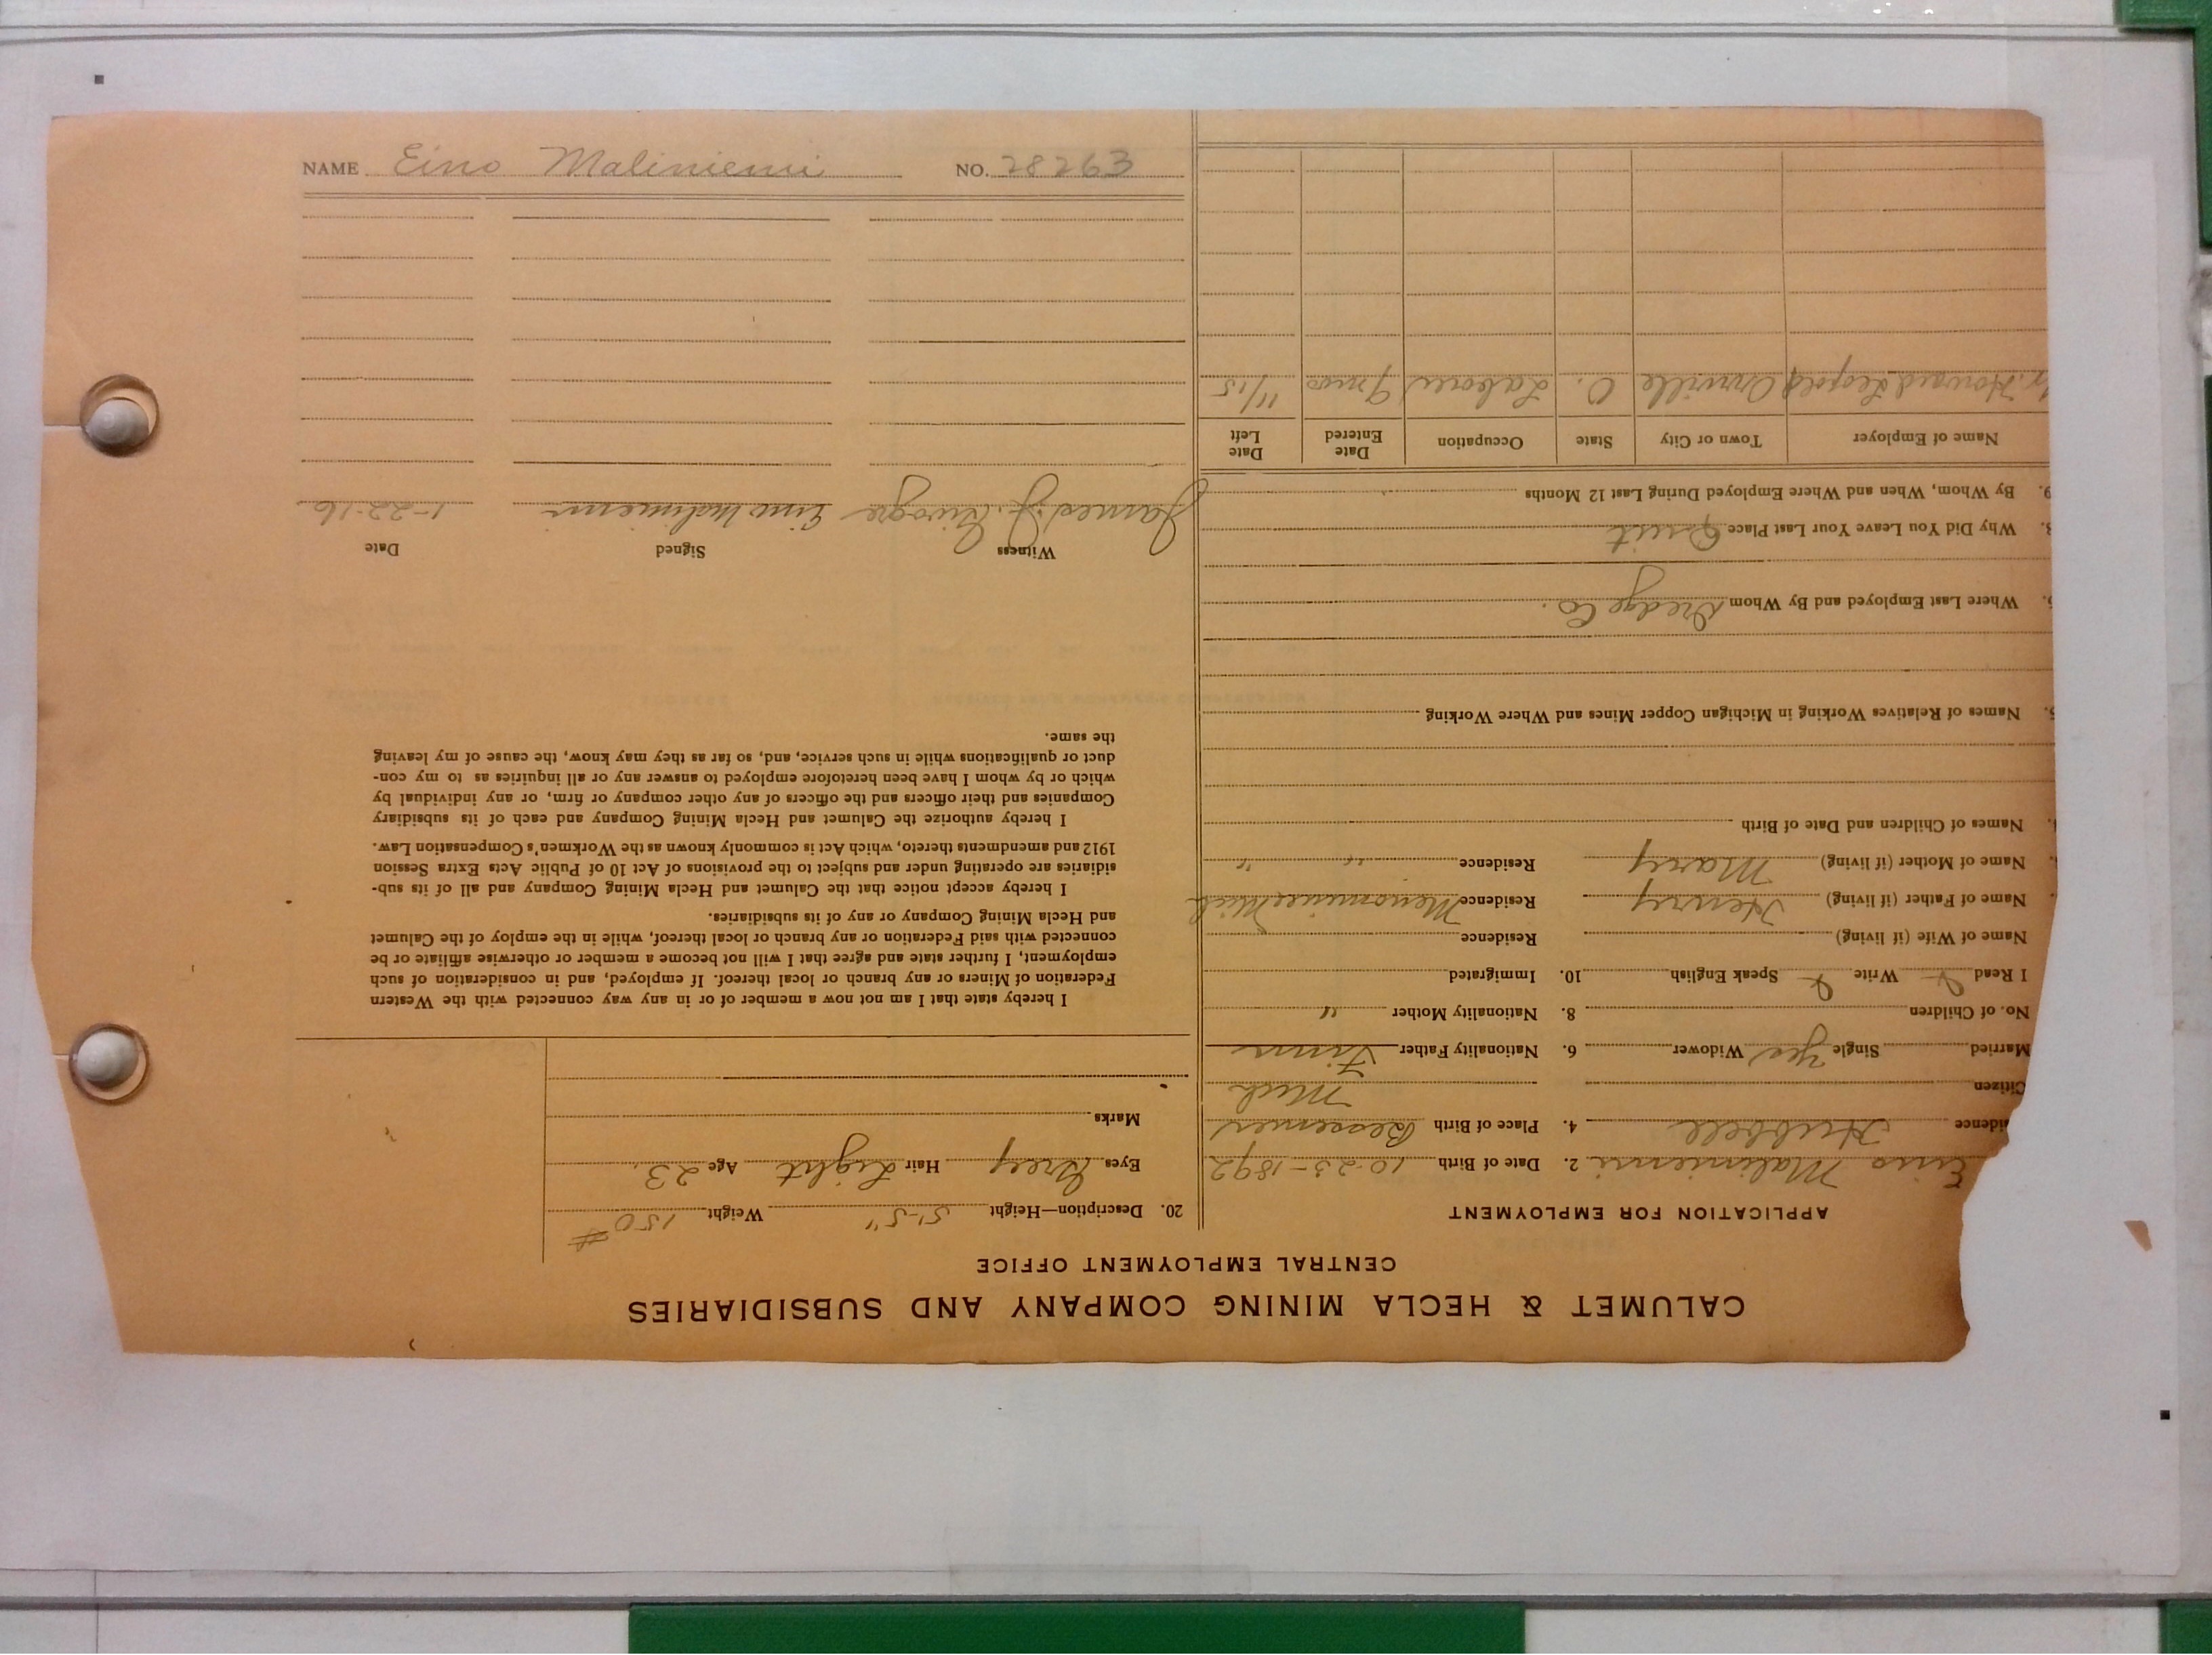 CALUMET & HECLA MINING COMPANY AND SUBSIDIARIES
CENTRAL EMPLOYMENT OFFICE
APPLICATION FOR EMPLOYMENT
Eino Maliniemi 2. Date of Birth 10-23-1892
idence Hubbell 4. Place of Birth Bessemer
Mich
Citizen
Married Single Yes Widower 6. Nationality Father Finn
No. of Children 8. Nationality Mother "
I Read Write Speak English 10. Immigrated
Name of Wife (if living) Residence
Name of Father (if living) Henry Residence Menominee Mich
Name of Mother (if living) Mary Residence " "
Names of Children and Date of Birth
Names of Relatives Working in Michigan Copper Mines and Where Working
Where Last Employed and By Whom Dredge Co.
Why Did You Leave Your Last Place Quit
9. By Whom, When and Where Employed During Last 12 Months
Name of Employer Town or City State Occupation Date Entered Date Left
Howard Leopold Orrville O. Laborer 9 mos 11/15
20. Description—Height 5'-5" Weight 150#
Eyes Grey Hair Light Age 23.
Marks
I hereby state that I am not now a member of or in any way connected with the Western
Federation of Miners or any branch or local thereof. If employed, and in consideration of such
employment, I further state and agree that I will not become a member or otherwise affiliate or be
connected with said Federation or any branch or local thereof, while in the employ of the Calumet
and Hecla Mining Company or any of its subsidiaries.
I hereby accept notice that the Calumet and Hecla Mining Company and all of its sub-
sidiaries are operating under and subject to the provisions of Act 10 of Public Acts Extra Session
1912 and amendments thereto, which Act is commonly known as the Workmen's Compensation Law.
I hereby authorize the Calumet and Hecla Mining Company and each of its subsidiary
Companies and their officers and the officers of any other company or firm, or any individual by
which or by whom I have been heretofore employed to answer any or all inquiries as to my con-
duct or qualifications while in such service, and, so far as they may know, the cause of my leaving
the same.
Witness Signed Date
James J. Eino Maliniemi 1-22-16
NAME Eino Maliniemi NO. 28263